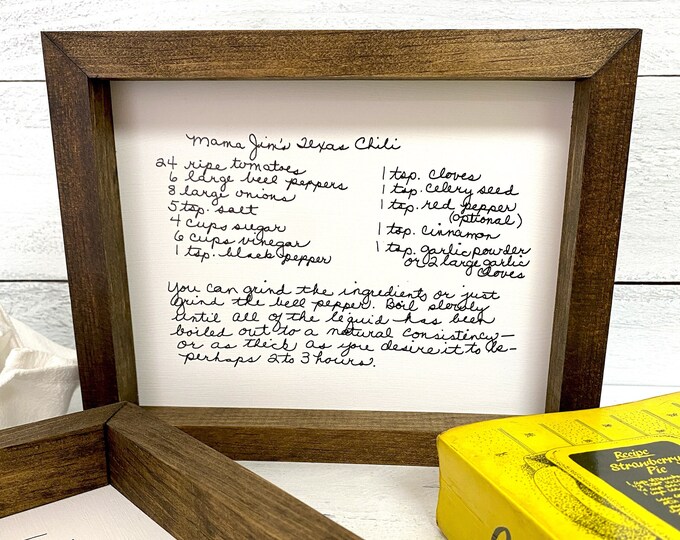 Mama Jim's Texas Chili
24 ripe tomatoes
6 large bell peppers
8 large onions
5 tsp. salt
4 cups sugar
6 cups vinegar
1 tsp. black pepper
1 tsp. cloves
1 tsp. celery seed
1 tsp. red pepper
(optional)
1 tsp. cinnamon
1 tsp. garlic powder
or 2 large garlic
cloves
You can grind the ingredients or just
grind the bell pepper. Boil slowly
until all of the liquid has been
boiled out to a natural consistency—
or as thick as you desire it to be—
perhaps 2 to 3 hours.
Recipe
Strawberry
Pie